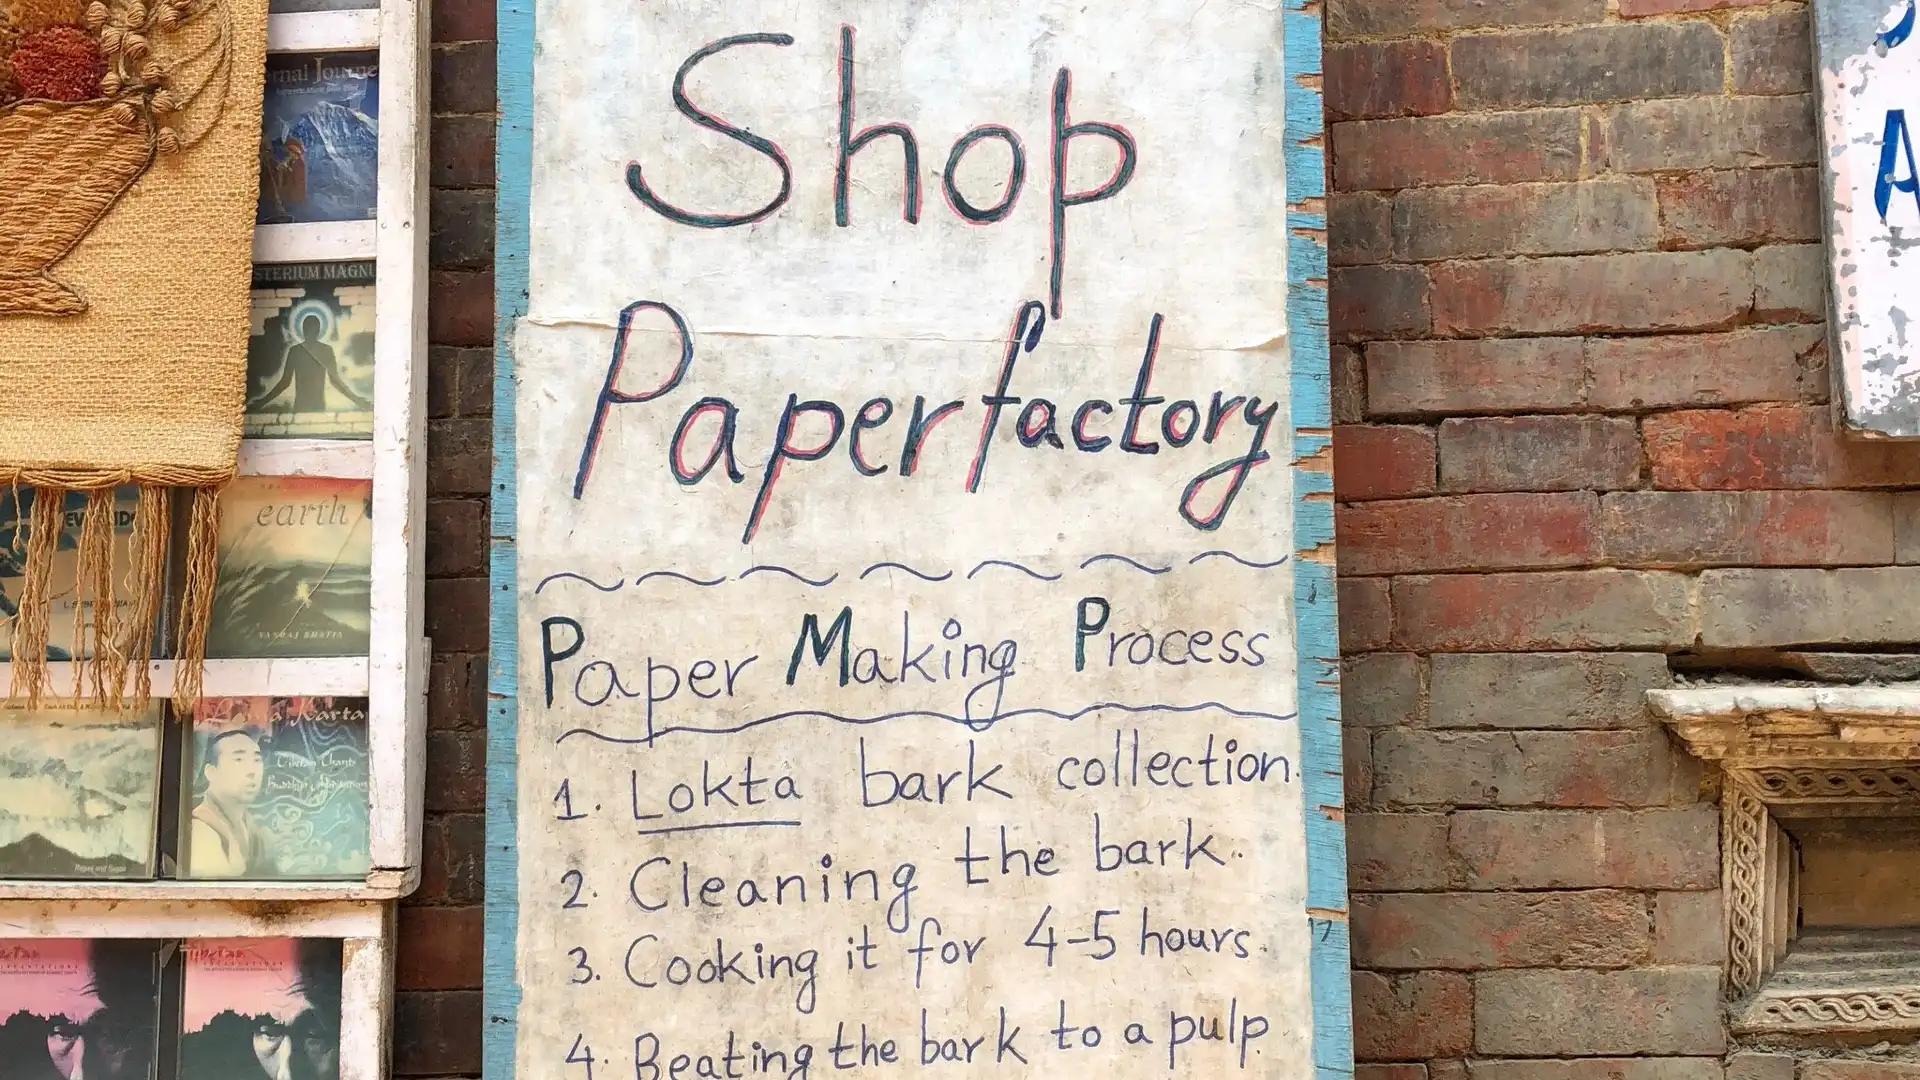 Shop
Paperfactory
Paper Making Process
1. Lokta bark collection.
2. Cleaning the bark.
3. Cooking it for 4-5 hours.
4. Beating the bark to a pulp.
earth
VANRAJ BHATIA
Tibetan Chants
A